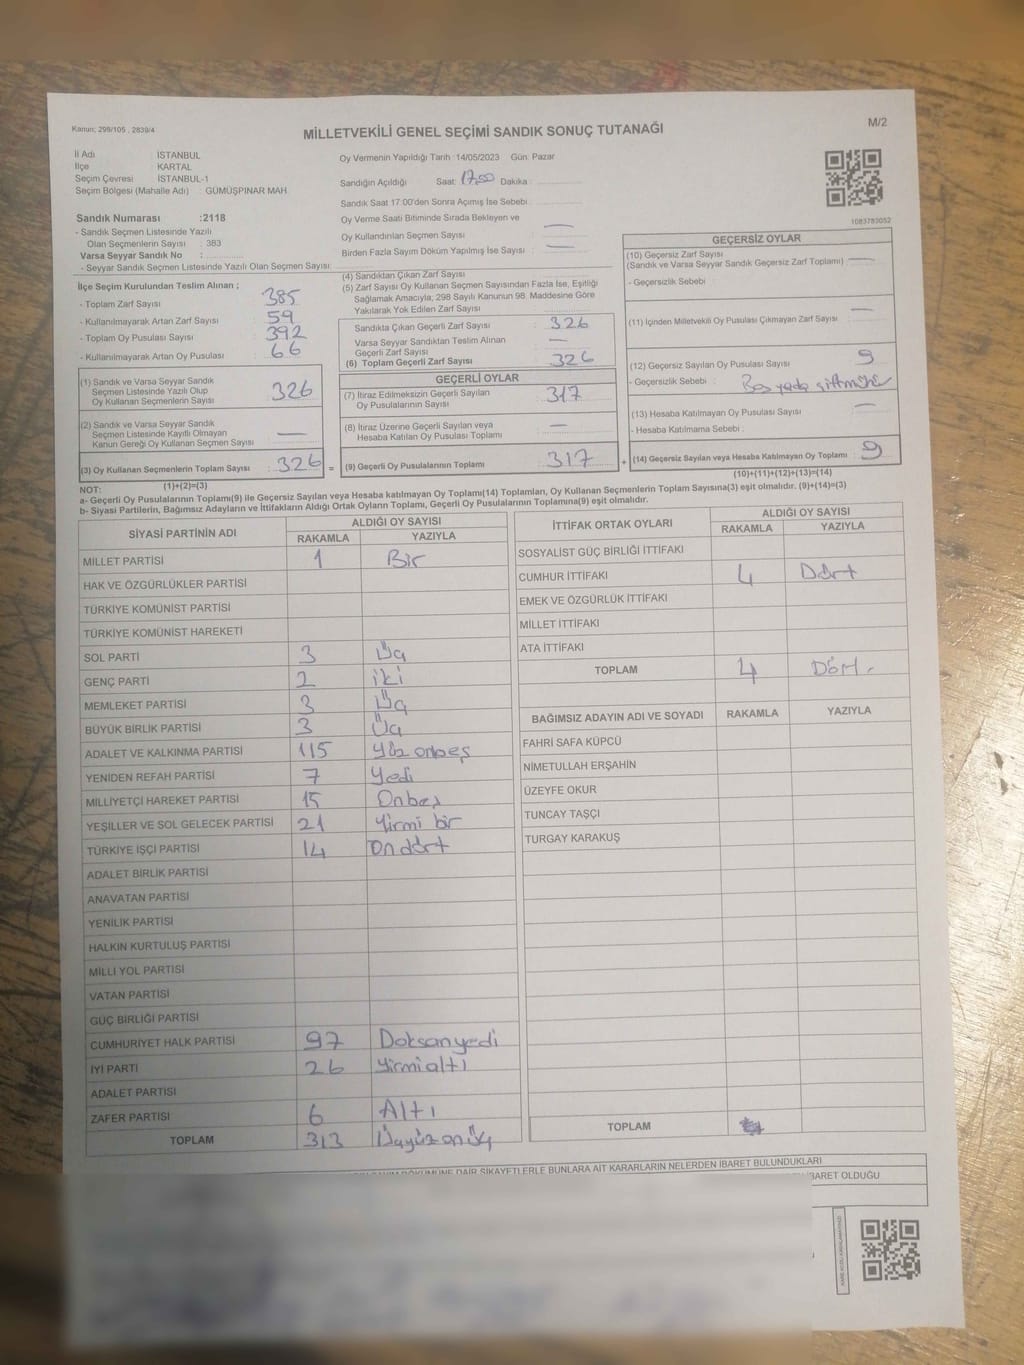 Kanun; 298/105 , 2839/4
MİLLETVEKİLİ GENEL SEÇİMİ SANDIK SONUÇ TUTANAĞI
M/2
İl Adı İSTANBUL
İlçe KARTAL
Seçim Çevresi İSTANBUL-1
Seçim Bölgesi (Mahalle Adı) : GÜMÜŞPINAR MAH.
Sandık Numarası :2118
- Sandık Seçmen Listesinde Yazılı
Olan Seçmenlerin Sayısı : 383
Varsa Seyyar Sandık No :
- Seyyar Sandık Seçmen Listesinde Yazılı Olan Seçmen Sayısı:
Oy Vermenin Yapıldığı Tarih :14/05/2023 Gün: Pazar
Sandığın Açıldığı Saat: 17.00 Dakika :
Sandık Saat 17:00'den Sonra Açılmış İse Sebebi:
Oy Verme Saati Bitiminde Sırada Bekleyen ve
Oy Kullandırılan Seçmen Sayısı : —
Birden Fazla Sayım Döküm Yapılmış İse Sayısı : —
1083783052
İlçe Seçim Kurulundan Teslim Alınan ;
- Toplam Zarf Sayısı 385
- Kullanılmayarak Artan Zarf Sayısı 59
- Toplam Oy Pusulası Sayısı 392
- Kullanılmayarak Artan Oy Pusulası 66
(1) Sandık ve Varsa Seyyar Sandık
Seçmen Listesinde Yazılı Olup
Oy Kullanan Seçmenlerin Sayısı 326
(2) Sandık ve Varsa Seyyar Sandık
Seçmen Listesinde Kayıtlı Olmayan
Kanun Gereği Oy Kullanan Seçmen Sayısı —
(3) Oy Kullanan Seçmenlerin Toplam Sayısı : 326 =
(1)+(2)=(3)
(4) Sandıktan Çıkan Zarf Sayısı
(5) Zarf Sayısı Oy Kullanan Seçmen Sayısından Fazla İse, Eşitliği
Sağlamak Amacıyla; 298 Sayılı Kanunun 98. Maddesine Göre
Yakılarak Yok Edilen Zarf Sayısı
Sandıkta Çıkan Geçerli Zarf Sayısı 326
Varsa Seyyar Sandıktan Teslim Alınan
Geçerli Zarf Sayısı —
(6) Toplam Geçerli Zarf Sayısı 326
GEÇERLİ OYLAR
(7) İtiraz Edilmeksizin Geçerli Sayılan
Oy Pusulalarının Sayısı 317
(8) İtiraz Üzerine Geçerli Sayılan veya
Hesaba Katılan Oy Pusulası Toplamı —
(9) Geçerli Oy Pusulalarının Toplamı 317 +
GEÇERSİZ OYLAR
(10) Geçersiz Zarf Sayısı
(Sandık ve Varsa Seyyar Sandık Geçersiz Zarf Toplamı) —
- Geçersizlik Sebebi
(11) İçinden Milletvekili Oy Pusulası Çıkmayan Zarf Sayısı —
(12) Geçersiz Sayılan Oy Pusulası Sayısı 9
- Geçersizlik Sebebi :
(13) Hesaba Katılmayan Oy Pusulası Sayısı —
- Hesaba Katılmama Sebebi :
(14) Geçersiz Sayılan veya Hesaba Katılmayan Oy Toplamı 9
(10)+(11)+(12)+(13)=(14)
NOT:
a- Geçerli Oy Pusulalarının Toplamı(9) ile Geçersiz Sayılan veya Hesaba katılmayan Oy Toplamı(14) Toplamları, Oy Kullanan Seçmenlerin Toplam Sayısına(3) eşit olmalıdır. (9)+(14)=(3)
b- Siyasi Partilerin, Bağımsız Adayların ve İttifakların Aldığı Ortak Oyların Toplamı, Geçerli Oy Pusulalarının Toplamına(9) eşit olmalıdır.
SİYASİ PARTİNİN ADI ALDIĞI OY SAYISI
RAKAMLA YAZIYLA
MİLLET PARTİSİ 1 Bir
HAK VE ÖZGÜRLÜKLER PARTİSİ
TÜRKİYE KOMÜNİST PARTİSİ
TÜRKİYE KOMÜNİST HAREKETİ
SOL PARTİ 3 Üç
GENÇ PARTİ 2 iki
MEMLEKET PARTİSİ 3 Üç
BÜYÜK BİRLİK PARTİSİ 3 Üç
ADALET VE KALKINMA PARTİSİ 115 Yüz onbeş
YENİDEN REFAH PARTİSİ 7 Yedi
MİLLİYETÇİ HAREKET PARTİSİ 15 Onbeş
YEŞİLLER VE SOL GELECEK PARTİSİ 21 Yirmi bir
TÜRKİYE İŞÇİ PARTİSİ 14 Ondört
ADALET BİRLİK PARTİSİ
ANAVATAN PARTİSİ
YENİLİK PARTİSİ
HALKIN KURTULUŞ PARTİSİ
MİLLİ YOL PARTİSİ
VATAN PARTİSİ
GÜÇ BİRLİĞİ PARTİSİ
CUMHURİYET HALK PARTİSİ 97 Doksanyedi
İYİ PARTİ 26 Yirmialtı
ADALET PARTİSİ
ZAFER PARTİSİ 6 Altı
TOPLAM 313 Üçyüzonüç
İTTİFAK ORTAK OYLARI ALDIĞI OY SAYISI
RAKAMLA YAZIYLA
SOSYALİST GÜÇ BİRLİĞİ İTTİFAKI
CUMHUR İTTİFAKI 4 Dört
EMEK VE ÖZGÜRLÜK İTTİFAKI
MİLLET İTTİFAKI
ATA İTTİFAKI
TOPLAM 4 Dört.
BAĞIMSIZ ADAYIN ADI VE SOYADI RAKAMLA YAZIYLA
FAHRİ SAFA KÜPCÜ
NİMETULLAH ERŞAHİN
ÜZEYFE OKUR
TUNCAY TAŞÇI
TURGAY KARAKUŞ
TOPLAM
DÖKÜMÜNE DAİR ŞİKAYETLERLE BUNLARA AİT KARARLARIN NELERDEN İBARET BULUNDUKLARI
İBARET OLDUĞU